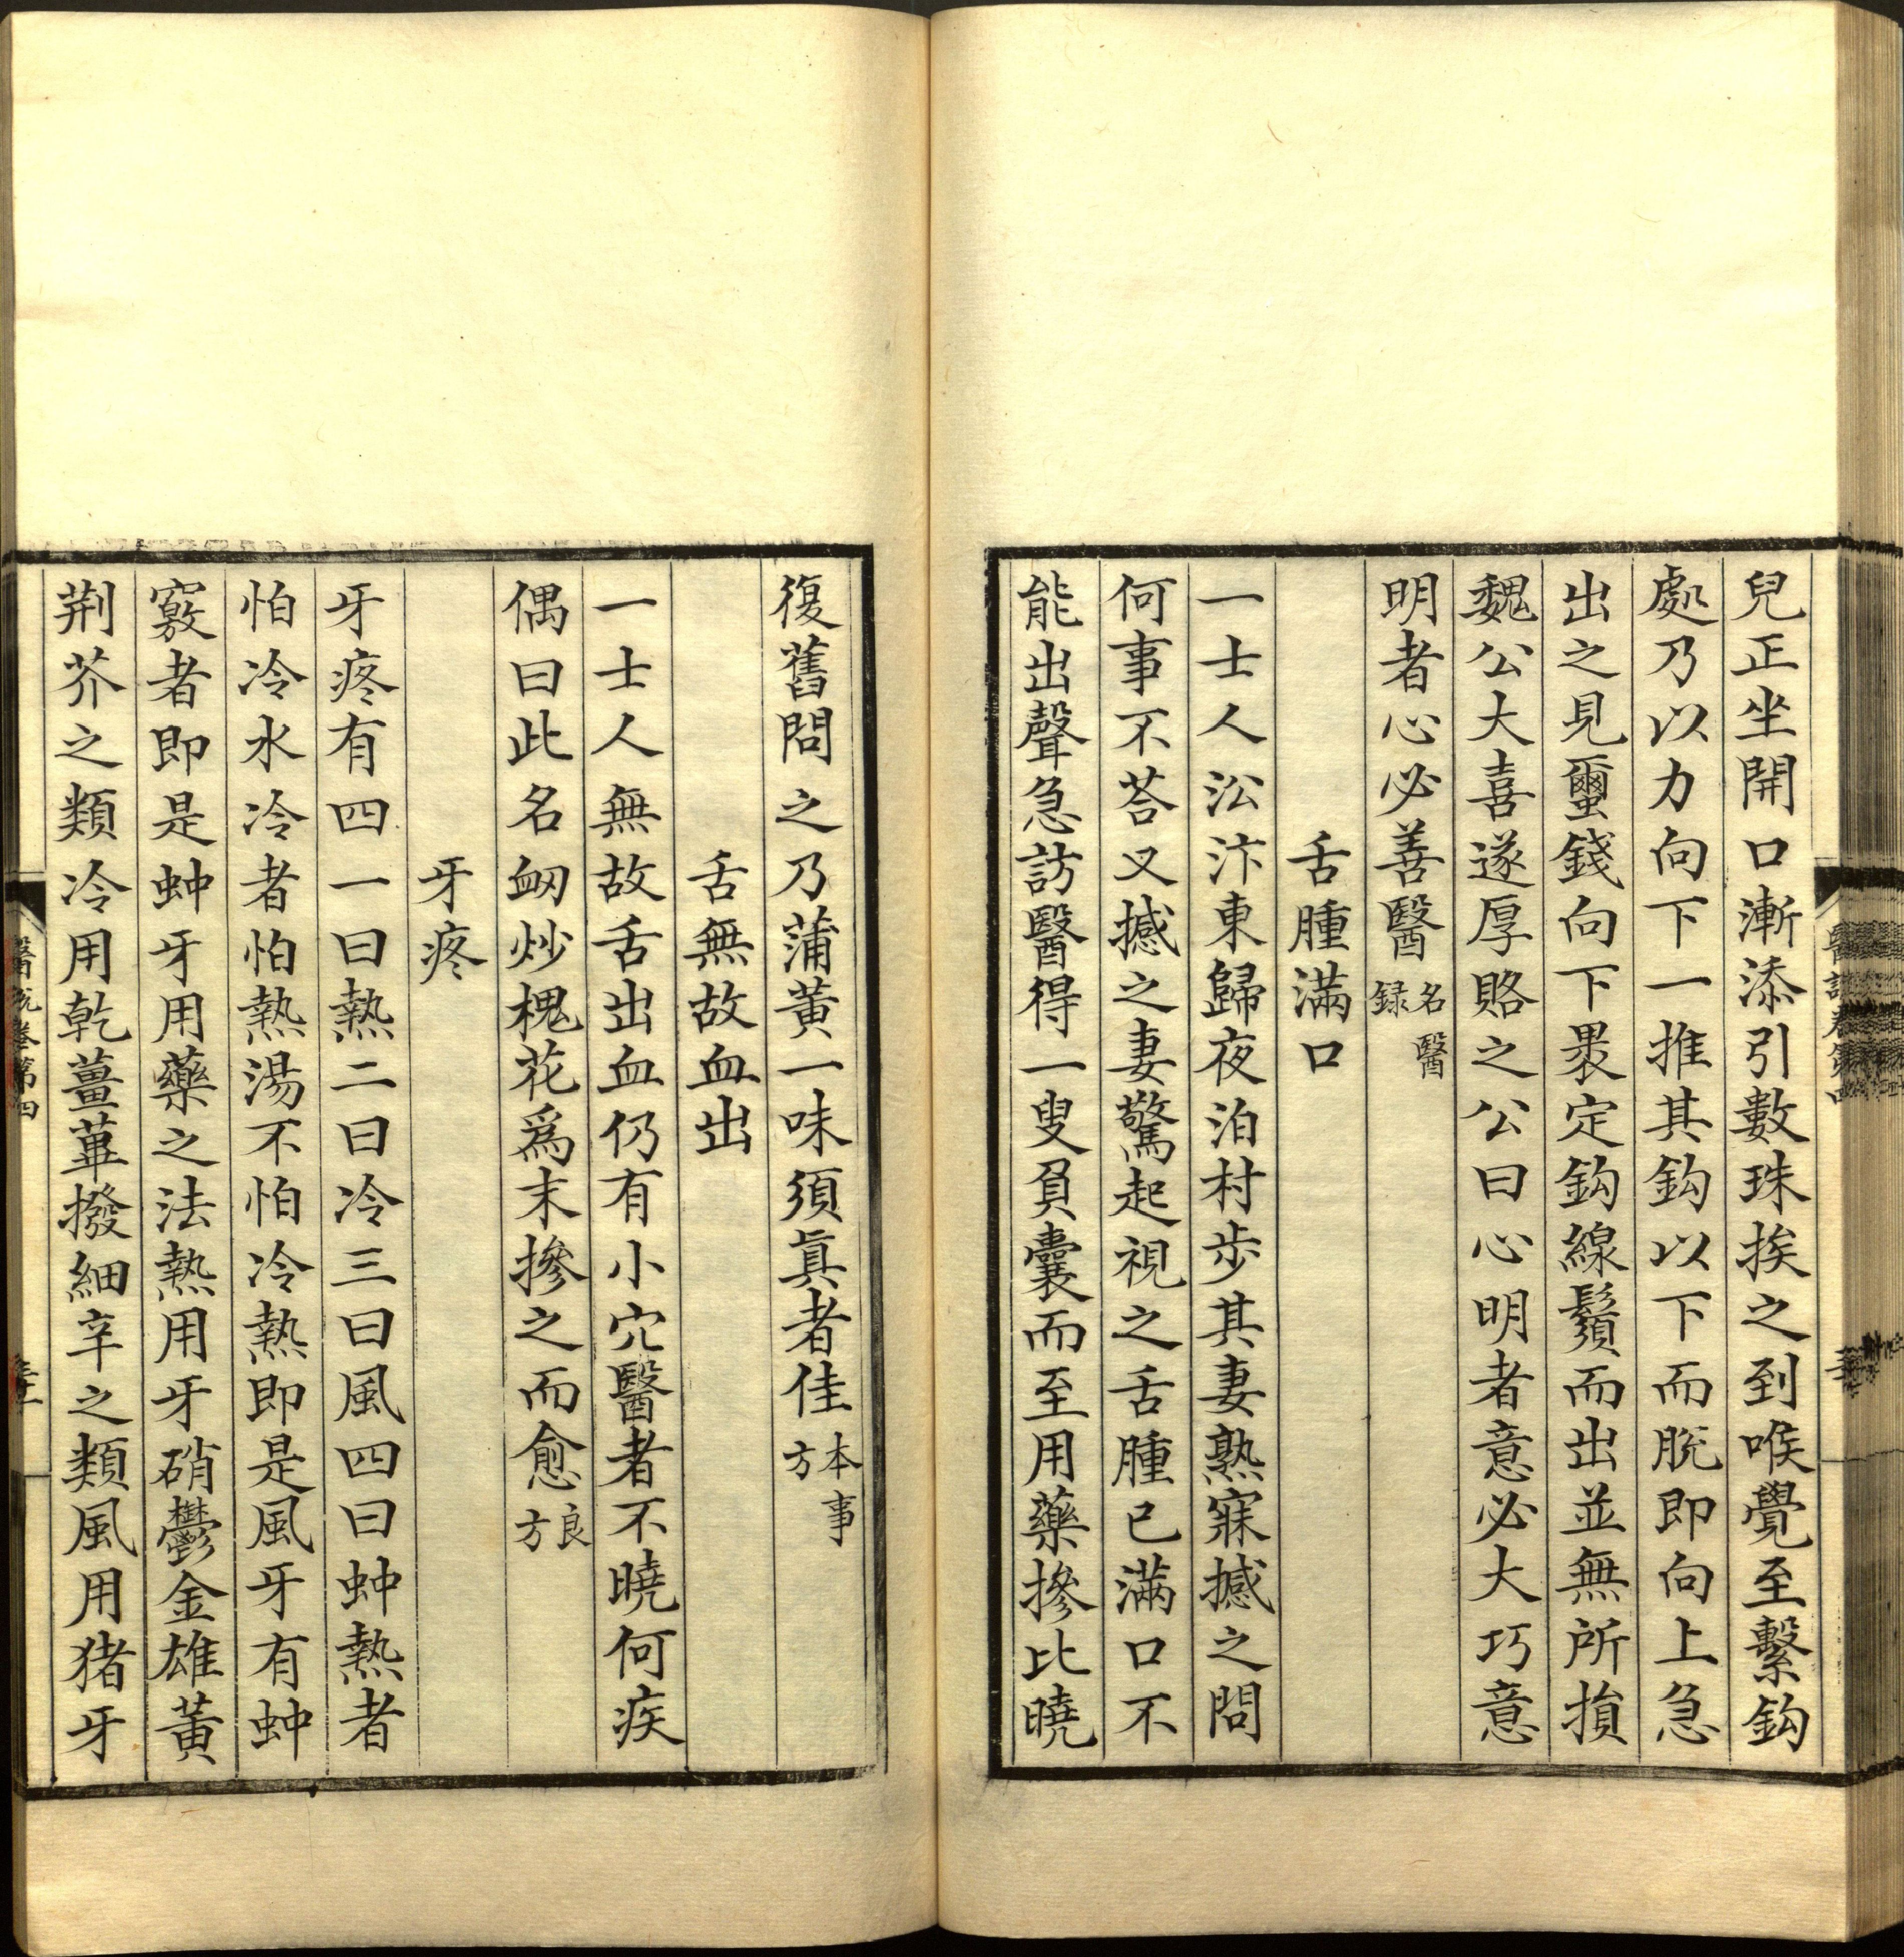 兒正坐開口漸添引數珠挨之到喉覺至繫鈎
處乃以力向下一推其鈎以下而脫即向上急
出之見璽錢向下裹定鈎線鬚而出並無所損
魏公大喜遂厚賂之公曰心明者意必大巧意
明者心必善醫名醫録
舌腫滿口
一士人㳂汴東歸夜泊村步其妻熟寐撼之問
何事不荅又撼之妻驚起視之舌腫已滿口不
能出聲急訪醫得一叟負囊而至用藥摻比曉
復舊問之乃蒲黃一味須眞者佳本事方
舌無故血出
一士人無故舌出血仍有小穴醫者不曉何疾
偶曰此名衂炒槐花爲末摻之而愈良方
牙疼
牙疼有四一曰熱二曰冷三曰風四曰蚛熱者
怕冷水冷者怕熱湯不怕冷熱即是風牙有蚛
竅者即是蚛牙用藥之法熱用牙硝鬱金雄黃
荆芥之類冷用乾薑蓽撥細辛之類風用猪牙
醫說卷第四